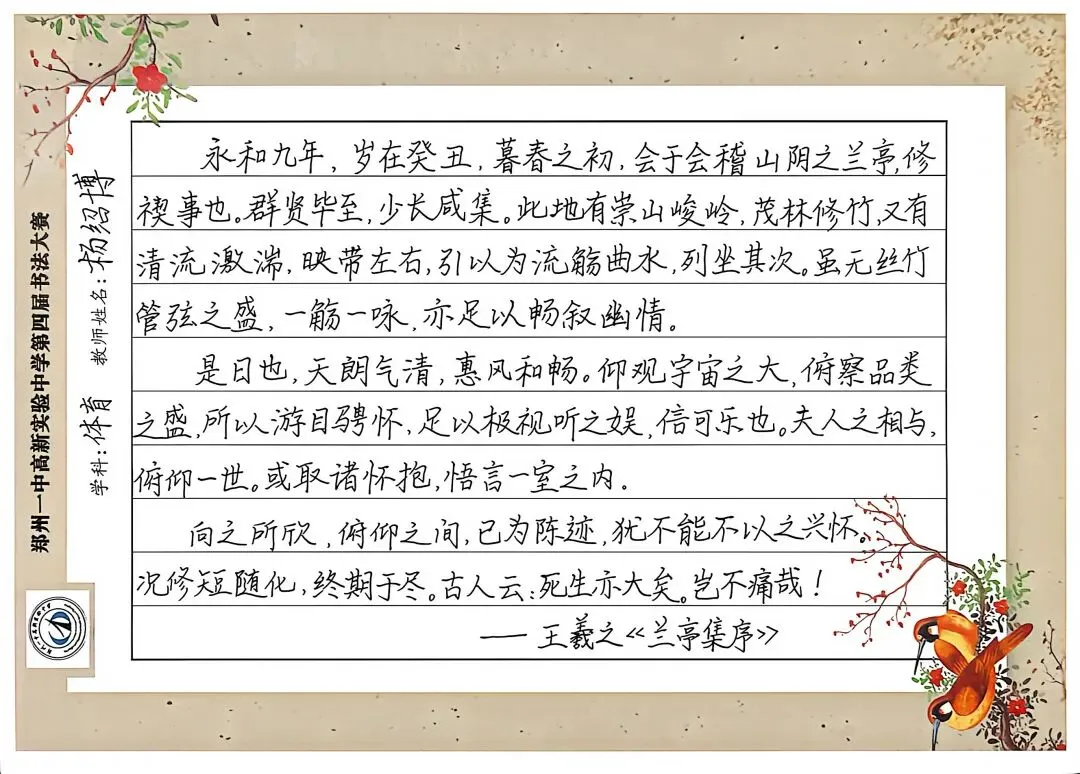 郑州一中高新实验中学第四届书法大赛
学科:体育 教师姓名:杨绍博
永和九年,岁在癸丑,暮春之初,会于会稽山阴之兰亭,修
禊事也。群贤毕至,少长咸集。此地有崇山峻岭,茂林修竹,又有
清流激湍,映带左右,引以为流觞曲水,列坐其次。虽无丝竹
管弦之盛,一觞一咏,亦足以畅叙幽情。
是日也,天朗气清,惠风和畅。仰观宇宙之大,俯察品类
之盛,所以游目骋怀,足以极视听之娱,信可乐也。夫人之相与,
俯仰一世。或取诸怀抱,悟言一室之内.
向之所欣,俯仰之间,已为陈迹,犹不能不以之兴怀。
况修短随化,终期于尽。古人云:死生亦大矣。岂不痛哉!
——王羲之《兰亭集序》